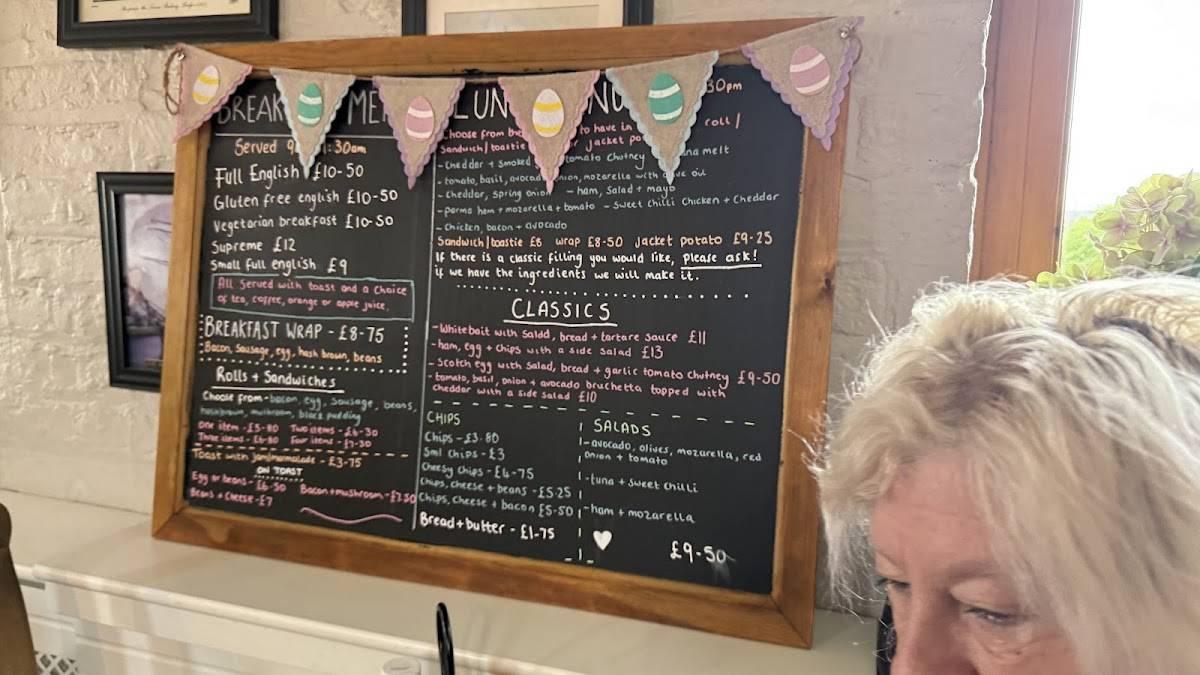 BREAK ME
Served 9 :30am
Full English £10-50
Gluten free english £10-50
Vegetarian breakfast £10-50
Supreme £12
Small full english £9
All Served with toast and a choice
of tea, coffee, orange or apple juice.
BREAKFAST WRAP - £8-75
Bacon, sausage, egg, hash brown, beans
Rolls + Sandwiches
Choose from - bacon, egg, sausage, beans,
hashbrown, mushroom, black pudding
One item - £5-80 Two items - £6-30
Three items - £6-80 Four items - £7-30
Toast with jam/marmalade - £3-75
ON TOAST
Egg or beans - £6-50 Bacon + mushroom - £7.50
Beans + Cheese - £7
LUN NU 30pm
Choose from the to have in roll /
Sandwich/toastie jacket po
- Cheddar + smoked tomato chutney na melt
- tomato, basil, avocado onion, mozarella with olive oil
- Cheddar, spring onion - ham, salad + mayo
- parma ham + mozarella + tomato - Sweet chilli chicken + cheddar
- Chicken, bacon + avocado
Sandwich/toastie £8 wrap £8-50 jacket potato £9-25
If there is a classic filling you would like, please ask!
if we have the ingredients we will make it.
CLASSICS
- Whitebait with salad, bread + tartare sauce £11
- ham, egg + chips with a side salad £13
- Scotch egg with salad, bread + garlic tomato chutney £9-50
- tomato, basil, onion + avocado bruchetta topped with
cheddar with a side salad £10
CHIPS
Chips - £3.80
Sml chips - £3
Cheesy chips - £4-75
Chips, cheese + beans - £5.25
Chips, cheese + bacon £5-50
Bread + butter - £1-75
SALADS
- avocado, olives, mozarella, red
onion + tomato
- tuna + sweet chilli
- ham + mozarella
£9-50